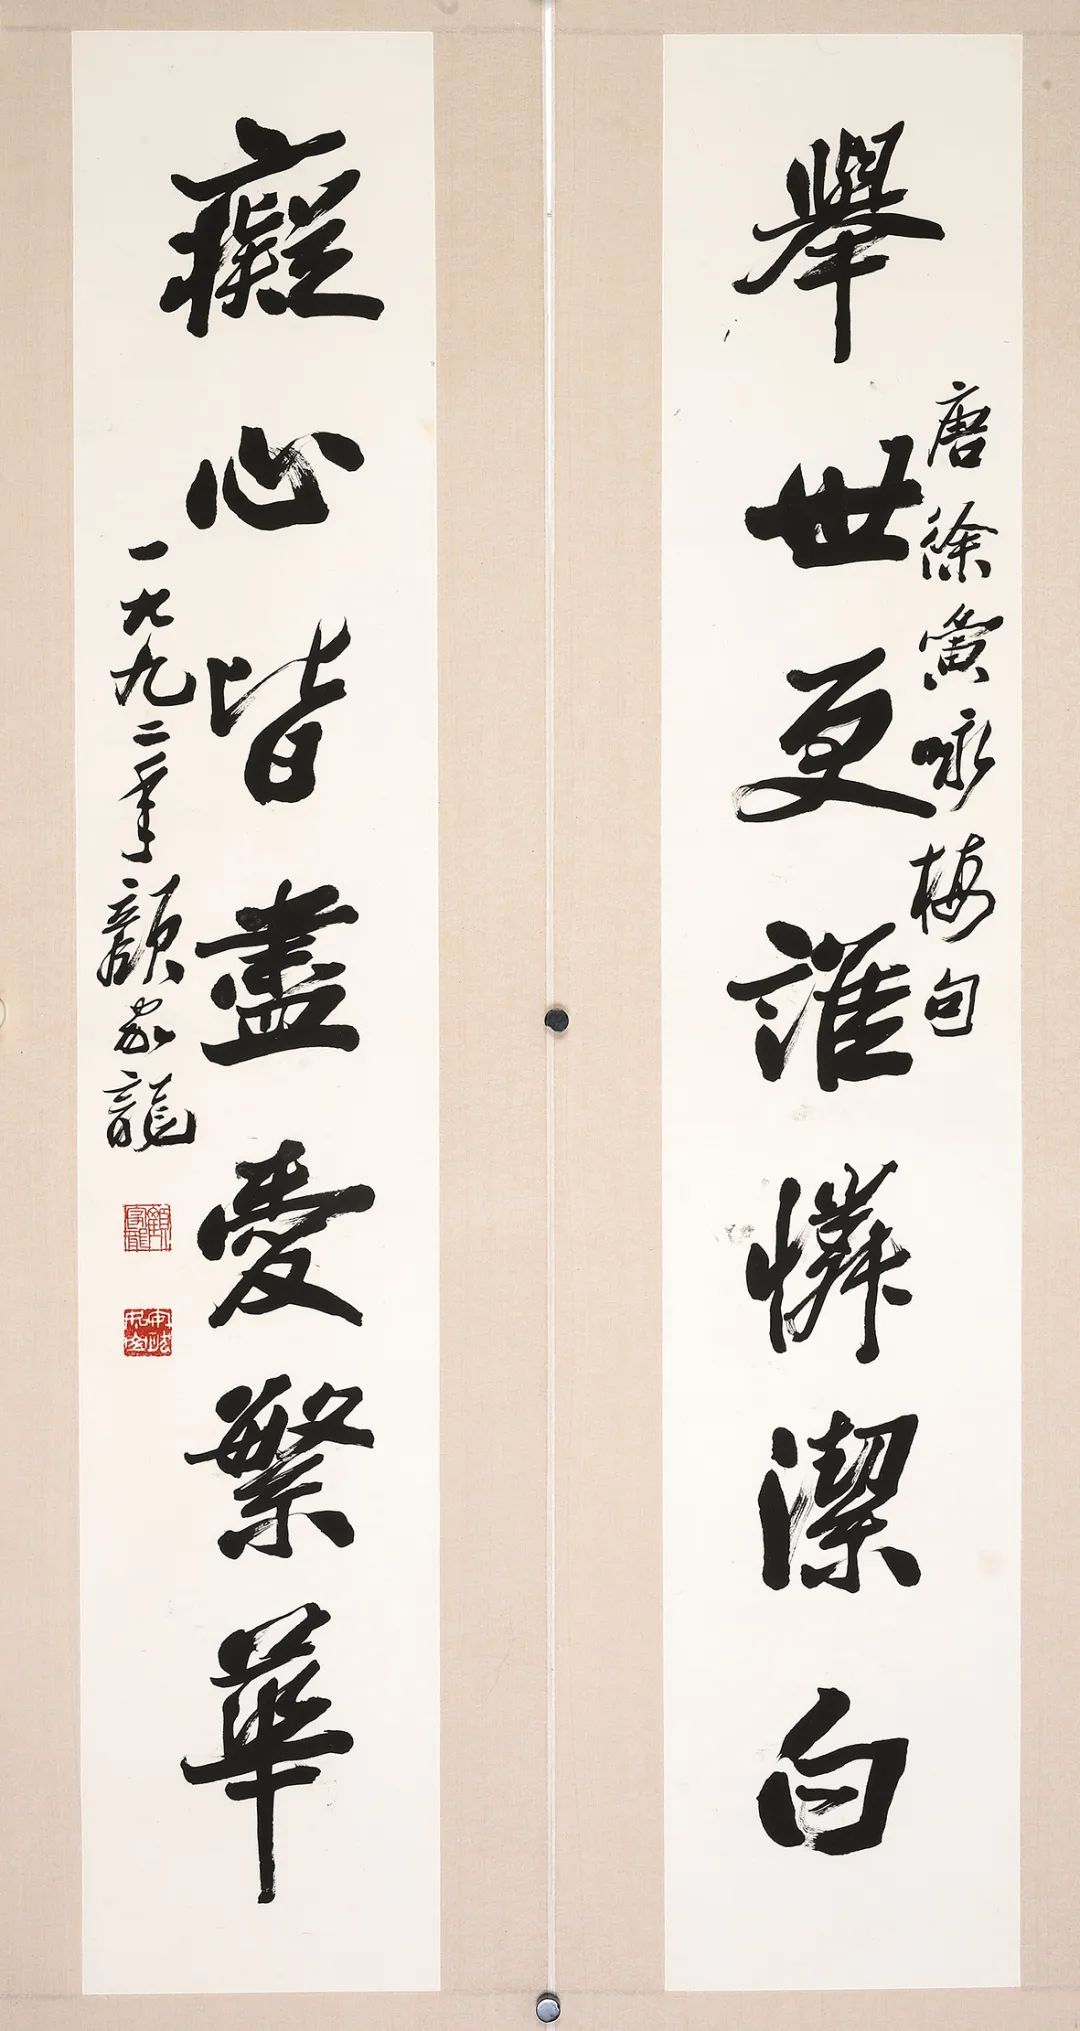 舉世更誰憐潔白
唐徐夤咏梅句
癡心皆盡愛繁華
一九九二年顏家龍
顏家龍